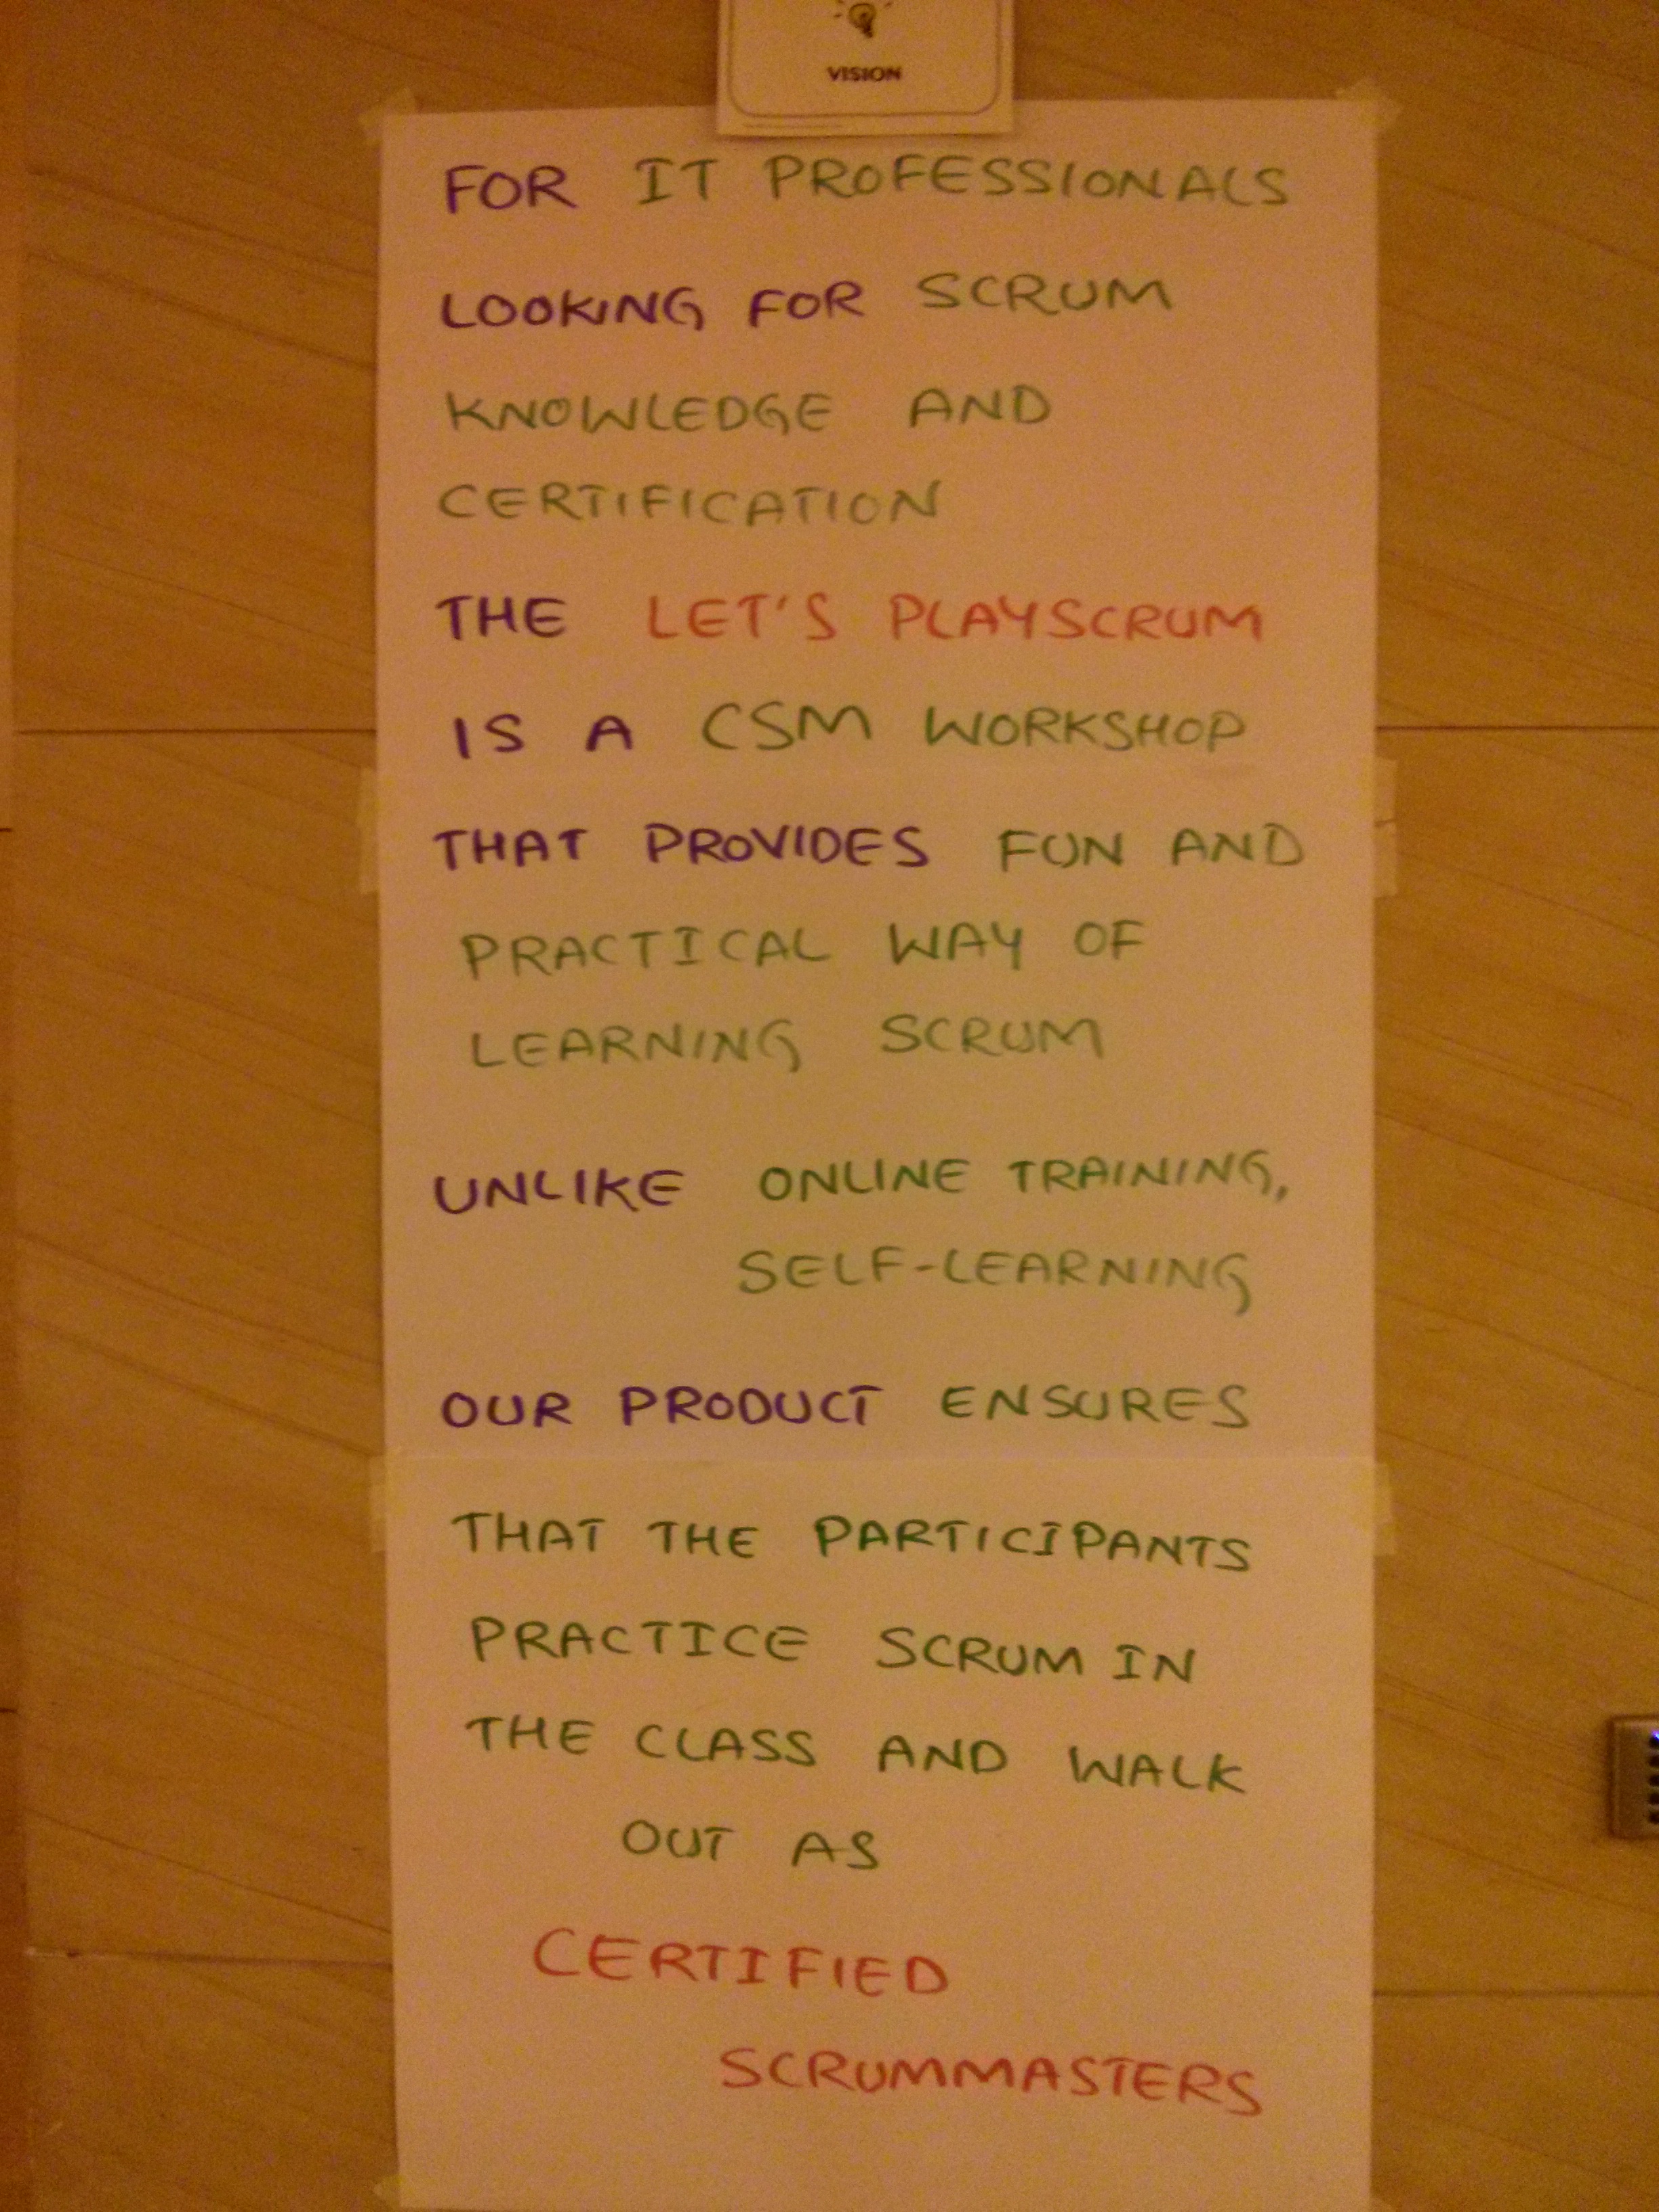 VISION
FOR IT PROFESSIONALS
LOOKING FOR SCRUM
KNOWLEDGE AND
CERTIFICATION
THE LET'S PLAYSCRUM
IS A CSM WORKSHOP
THAT PROVIDES FUN AND
PRACTICAL WAY OF
LEARNING SCRUM
UNLIKE ONLINE TRAINING,
SELF-LEARNING
OUR PRODUCT ENSURES
THAT THE PARTICIPANTS
PRACTICE SCRUM IN
THE CLASS AND WALK
OUT AS
CERTIFIED
SCRUMMASTERS